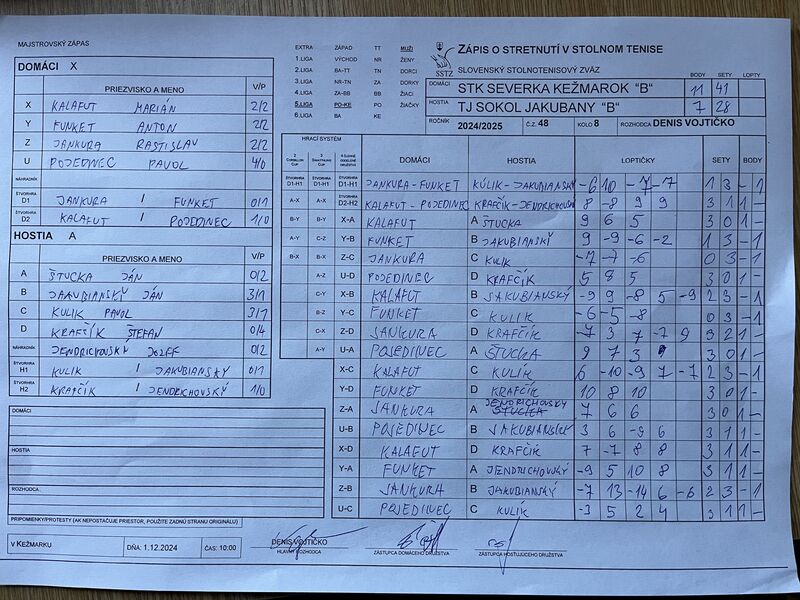 MAJSTROVSKÝ ZÁPAS
DOMÁCI X
PRIEZVISKO A MENO V/P
X KALAFUT MARIÁN 2/2
Y FUNKET ANTON 2/2
Z JANKURA RASTISLAV 2/2
U POJEDINEC PAVOL 4/0
NÁHRADNÍK
ŠTVORHRA D1 JANKURA / FUNKET 0/1
ŠTVORHRA D2 KALAFUT / POJEDINEC 1/0
HOSTIA A
PRIEZVISKO A MENO V/P
A ŠTUCKA JÁN 0/2
B JAKUBIANSKÝ JÁN 3/1
C KULIK PAVOL 3/1
D KRAFČÍK ŠTEFAN 0/4
NÁHRADNÍK JENDRICHOVSKÝ JOZEF 0/2
ŠTVORHRA H1 KULIK / JAKUBIANSKÝ 0/1
ŠTVORHRA H2 KRAFČÍK / JENDRICHOVSKÝ 1/0
DOMÁCI
HOSTIA
ROZHODCA
PRIPOMIENKY/PROTESTY (AK NEPOSTAČUJE PRIESTOR, POUŽITE ZADNÚ STRANU ORIGINÁLU)
V KEŽMARKU DŇA: 1.12.2024 ČAS: 10:00
EXTRA ZÁPAD TT MUŽI
1.LIGA VÝCHOD NR ŽENY
2.LIGA BA-TT TN DORCI
3.LIGA TN NR ZA DORKY
4.LIGA ZA-BB BB ŽIACI
5.LIGA PO-KE PO ŽIAČKY
6.LIGA BA KE
SSTZ
ZÁPIS O STRETNUTÍ V STOLNOM TENISE
SLOVENSKÝ STOLNOTENISOVÝ ZVÄZ
BODY SETY LOPTY
DOMÁCI STK SEVERKA KEŽMAROK "B" 11 41
HOSTIA TJ SOKOL JAKUBANY "B" 7 28
ROČNÍK 2024/2025 Č.Z. 48 KOLO 8 ROZHODCA DENIS VOJTIČKO
HRACÍ SYSTÉM
DOMÁCI HOSTIA LOPTIČKY SETY BODY
D1-H1 D1-H1 D1-H1 JANKURA-FUNKET KÚLIK-JAKUBIANSKÝ -6 10 -7 -7 1 3 - 1
A-X A-X D2-H2 KALAFUT-POJEDINEC KRAFČÍK-JENDRICHOVSKÝ 8 -8 9 9 3 1 1 -
B-Y B-Y X-A KALAFUT A ŠTUCKA 9 6 5 3 0 1 -
A-Y C-Z Y-B FUNKET B JAKUBIANSKÝ 9 -9 -6 -2 1 3 - 1
B-X B-X Z-C JANKURA C KULIK -7 -7 -6 0 3 - 1
A-Z U-D POJEDINEC D KRAFČÍK 5 8 5 3 0 1 -
C-Y X-B KALAFUT B JAKUBIANSKÝ -9 9 -8 5 -9 2 3 - 1
B-Z Y-C FUNKET C KULIK -6 -5 -8 0 3 - 1
C-X Z-D JANKURA D KRAFČÍK -7 3 7 -7 9 3 2 1 -
A-Y U-A POJEDINEC A ŠTUCKA 9 7 3 3 0 1 -
X-C KALAFUT C KULIK 6 -10 -9 7 -7 2 3 - 1
Y-D FUNKET D KRAFČÍK 10 8 10 3 0 1 -
Z-A JANKURA A JENDRICHOVSKÝ 7 6 6 3 0 1 -
U-B POJEDINEC B JAKUBIANSKÝ 3 6 -9 6 3 1 1 -
X-D KALAFUT D KRAFČÍK 7 -7 8 8 3 1 1 -
Y-A FUNKET A JENDRICHOVSKÝ -9 5 10 8 3 1 1 -
Z-B JANKURA B JAKUBIANSKÝ -7 13 -14 6 -6 2 3 - 1
U-C POJEDINEC C KULÍK -3 5 2 4 3 1 1 -
DENIS VOJTIČKO
HLAVNÝ ROZHODCA ZÁSTUPCA DOMÁCEHO DRUŽSTVA ZÁSTUPCA HOSŤUJÚCEHO DRUŽSTVA